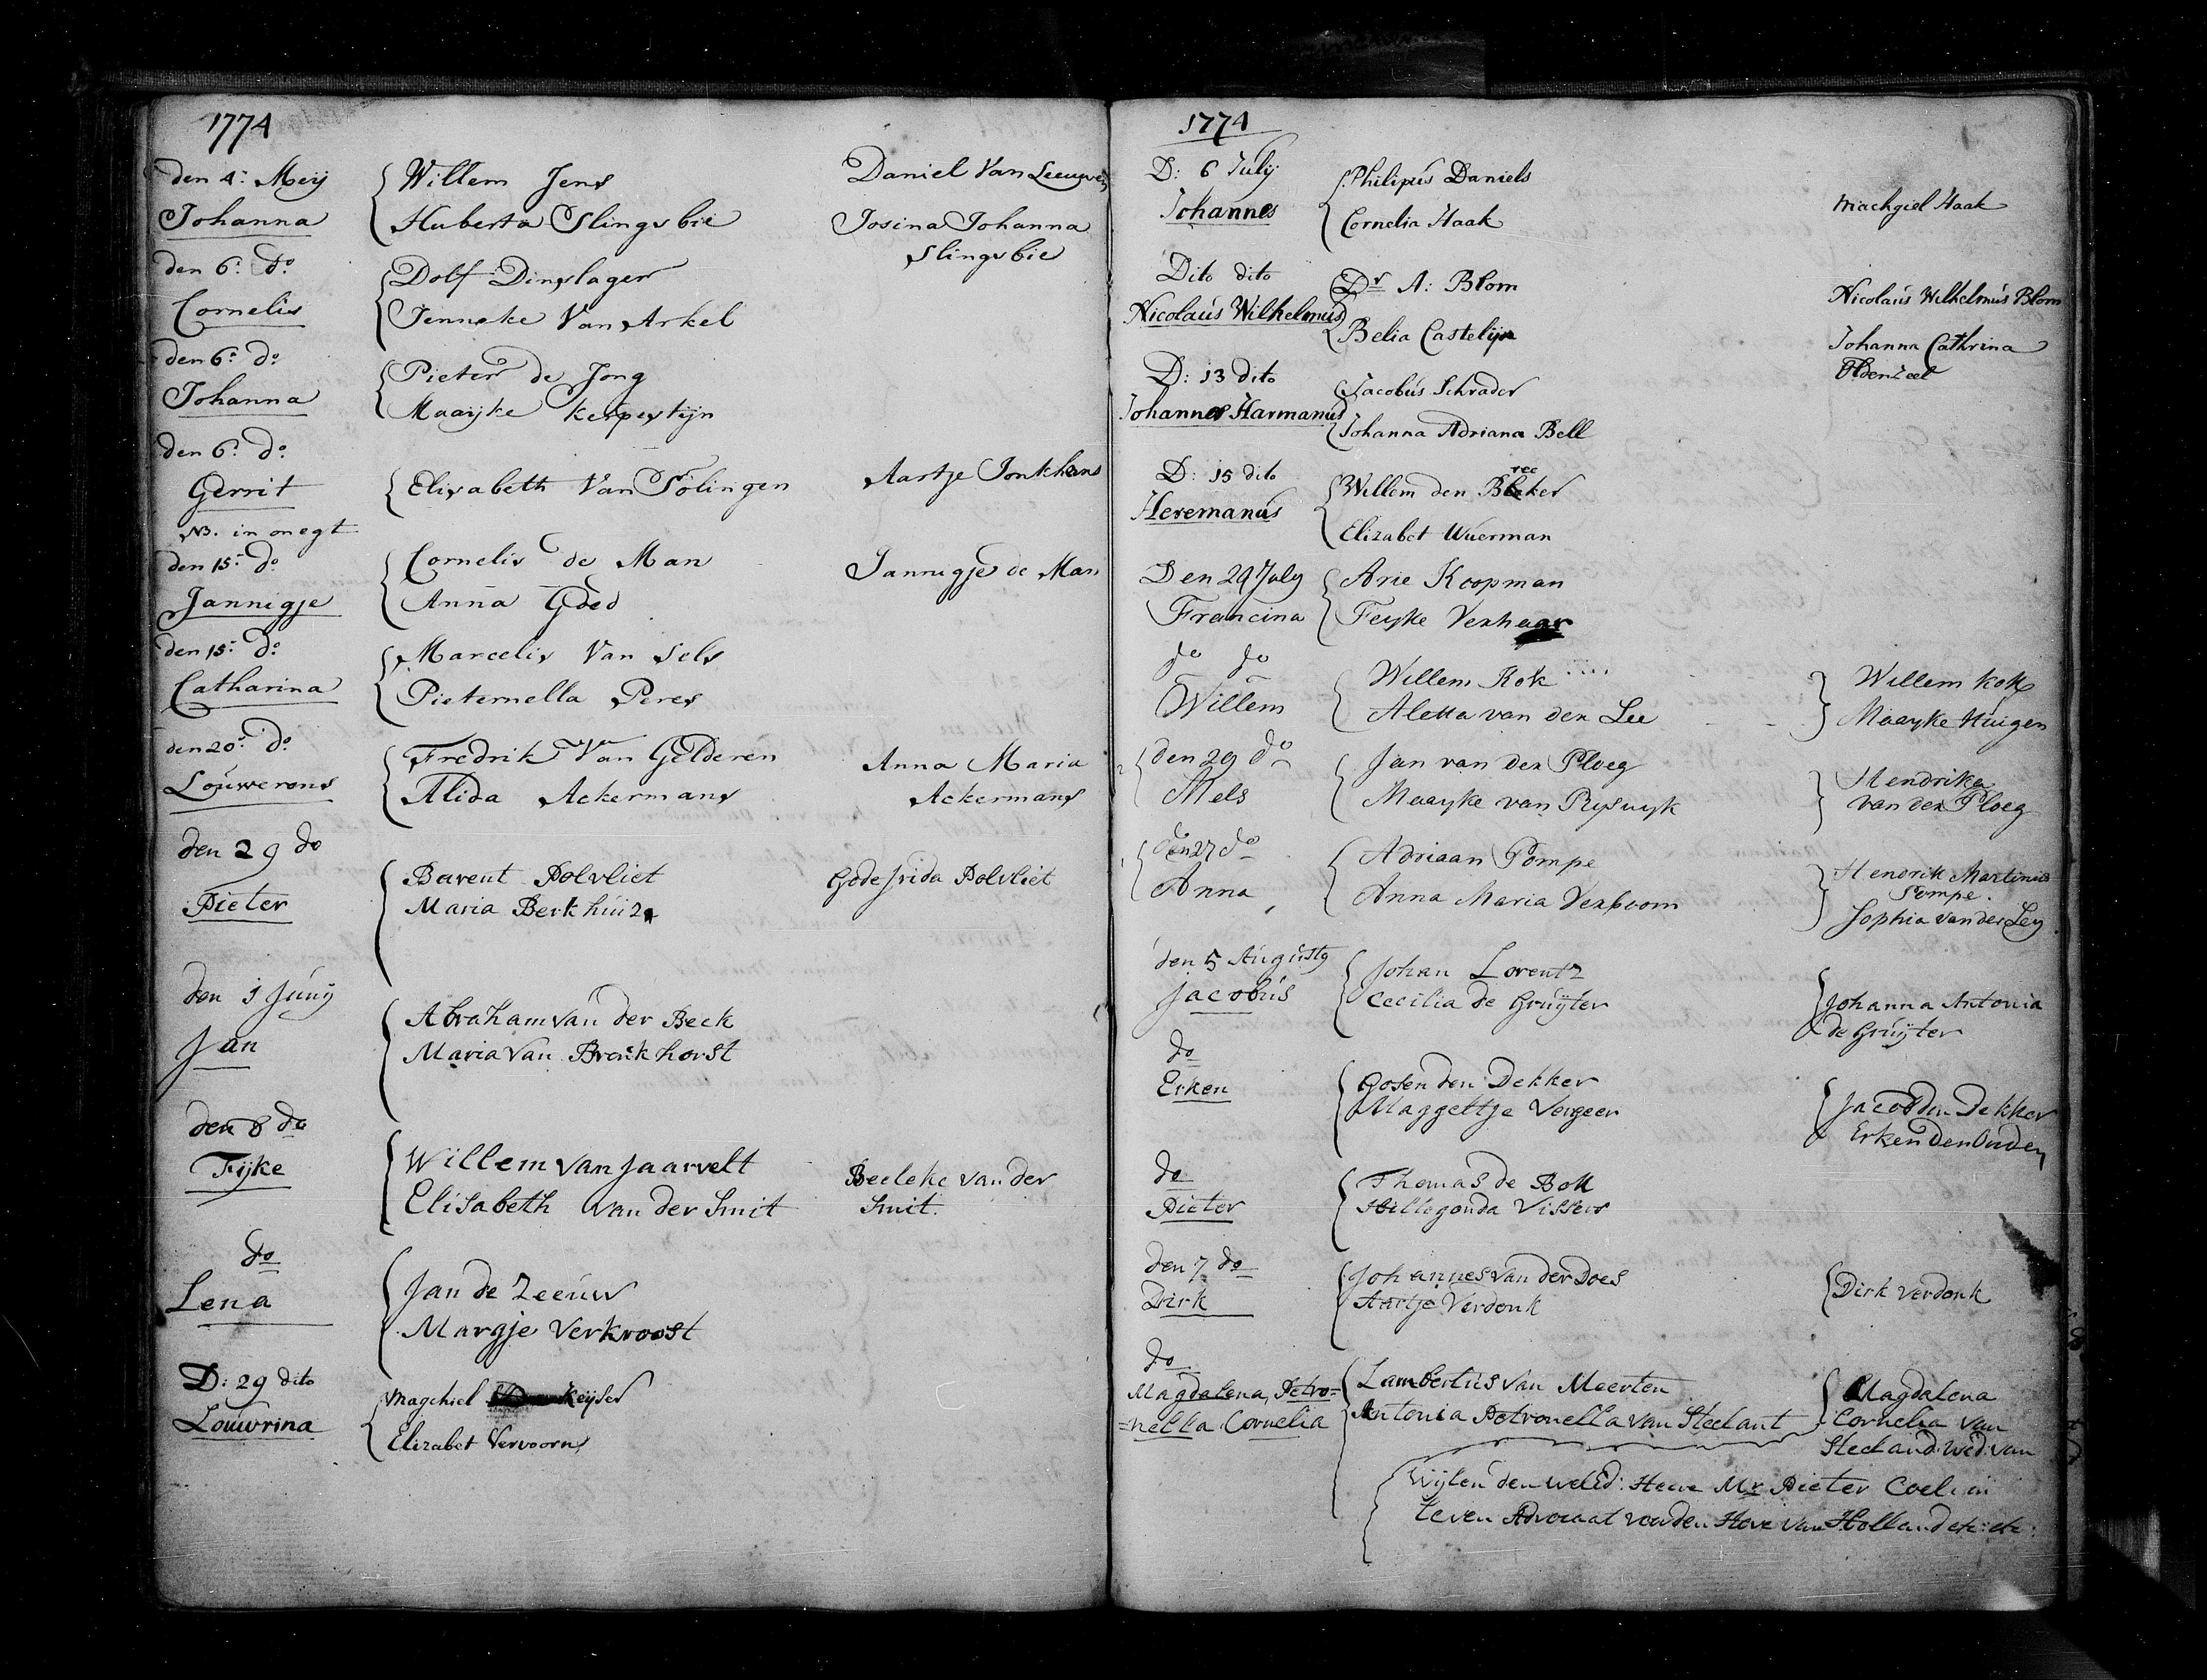 1774
den 4: Meij
Johanna
Willem Jens
Huberta Slingsbie
Daniel Van Leeuwen
Josina Johanna
Slingsbie
den 6: do
Cornelis
Dolf Dinslager
Jenneke Van Arkel
den 6: do
Johanna
Pieter de Jong
Maaijke Kerpestijn
den 6: do
Gerrit
NB. in onegt
Elisabeth Van Solingen
Aartje Jonkhans
den 15: do
Jannigje
Cornelis de Man
Anna Goed
Jannigje de Man
den 15: do
Catharina
Marcelis Van Sels
Pieternella Peres
den 20: do
Louwerens
Fredrik Van Gelderen
Alida Ackermans
Anna Maria
Ackermans
den 29 do
Pieter
Barent Polvliet
Maria Berkhuiz
Godefrida Polvliet
den 1 Junij
Jan
Abraham van der Beek
Maria van Bronkhorst
den 8 do
Fijke
Willem van Jaarvelt
Elisabeth van der Smit
Beeleke van der
Smit.
do
Lena
Jan de Zeeuw
Margje Verkroost
D: 29 dito
Louwrina
Magchiel Keijser
Elizabet Vervoorn
1774
D: 6 Julij
Johannes
Philipus Daniels
Cornelia Haak
Machgiel Haak
Dito dito
Nicolaus Wilhelmus
Dr A: Blom
Belia Castelijn
Nicolaus Wilhelmus Blom
Johanna Cathrina
Oldenzeel
D: 13 dito
Johannes Harmanus
Jacobus Schrader
Johanna Adriana Bell
D: 15 dito
Heremanus
Willem den Breeker
Elizabet Wuerman
Den 29 July
Francina
Arie Koopman
Feyke Verhaar
do do
Willem
Willem Kok
Aletta van der Lee
Willem Kok
Maayke Huigen
2 den 29 do
Mels
Jan van der Ploeg
Maayke van Ryswyk
Hendrika
van der Ploeg
1 den 27 do
Anna
Adriaan Pompe
Anna Maria Verboom
Hendrik Martinus
Pompe.
Sophia van der Ley
den 5 Augusty
Jacobus
Johan Lorentz
Cecilia de Gruijter
Johanna Antonia
de Gruijter
do
Erken
Gosen den Dekker
Maggeltje Vergeer
Jacob den Dekker
Erken den Ouden
do
Pieter
Thomas de Bok
Hillegonda Vissers
den 7 do
Dirk
Johannes van der Does
Aartje Verdonk
Dirk Verdonk
do
Magdalena, Petro=
=nella Cornelia
Lambertus van Meerten
Antonia Petronella van Steelant
Magdalena
Cornelia van
Steeland: Wed: van
Wijlen den WelEd: Heere Mr Pieter Coel in
Leven Advocaat voor den Hove van Holland etc: etc: